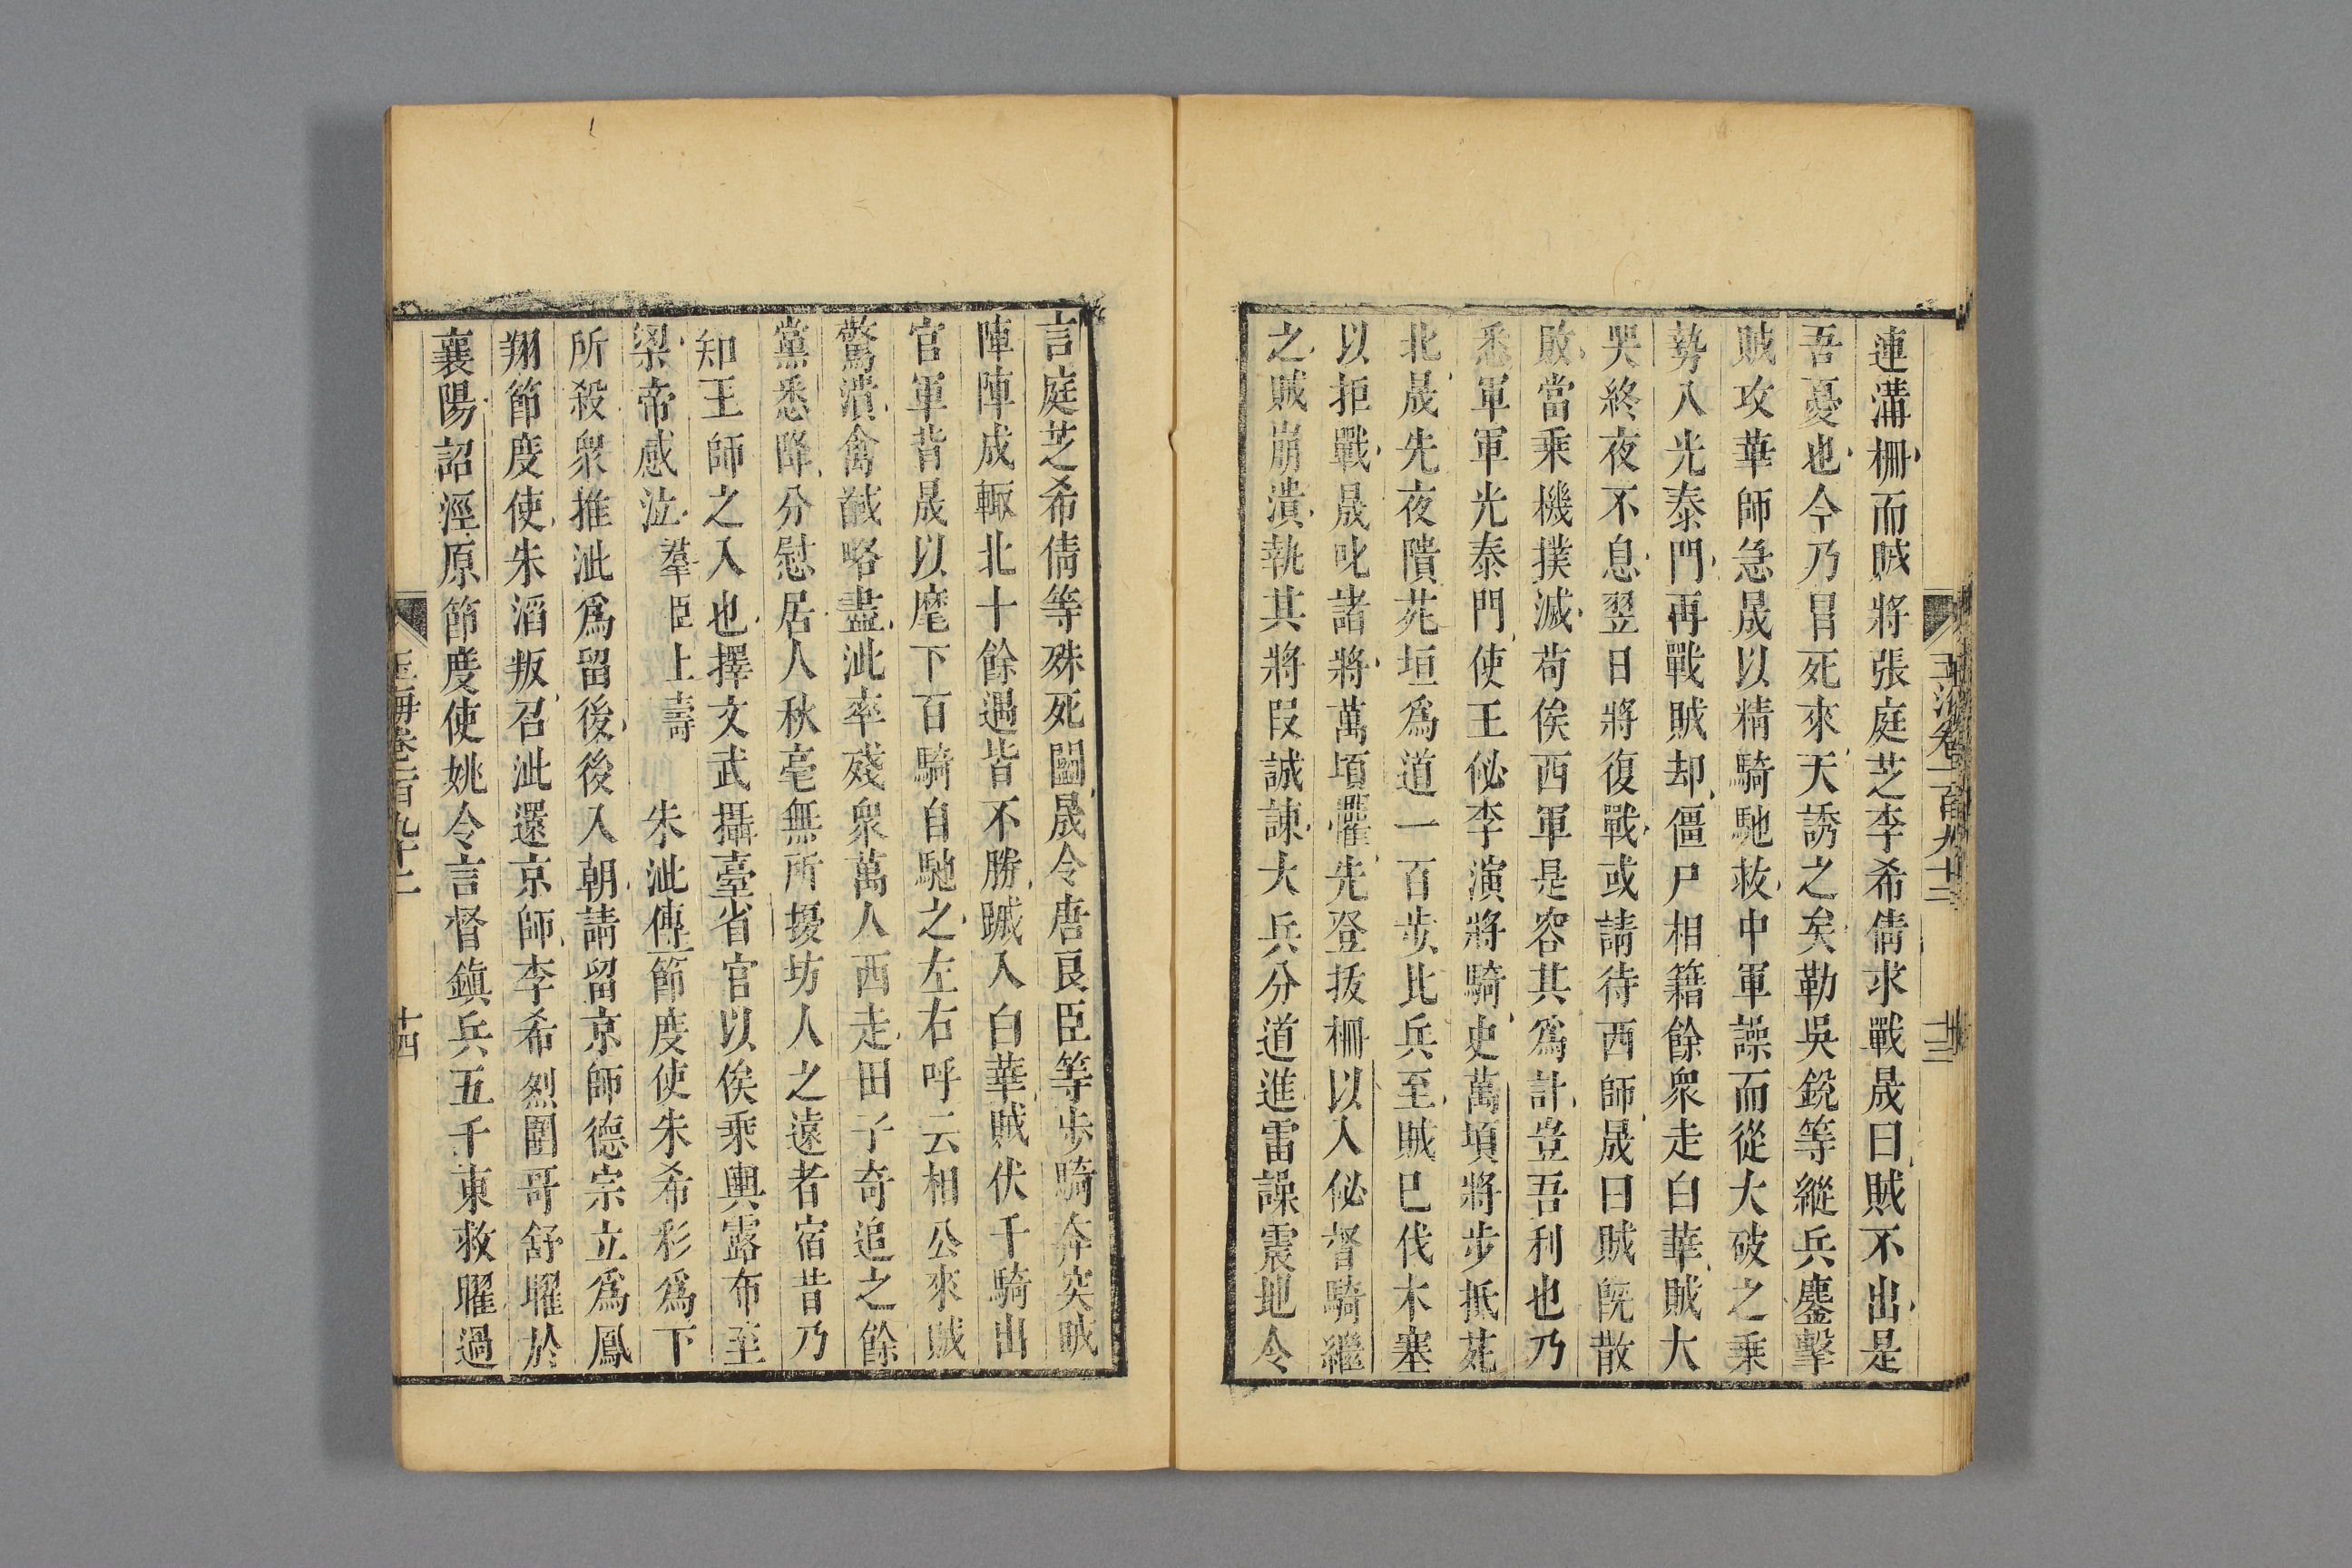 玉海卷一百九十三
十三
連溝柵而賊將張庭芝李希倩求戰晟曰賊不出是
吾憂也今乃冒死來天誘之矣勒吳銳等縱兵鏖擊
賊攻華師急晟以精騎馳救中軍譟而從大破之乗
勢入光泰門再戰賊却僵尸相籍餘衆走白華賊大
哭終夜不息翌日將復戰或請待西師晟曰賊旣散
敗當乘機撲滅苟俟西軍是容其爲計豈吾利也乃
悉軍軍光泰門使王佖李演將騎史萬頃將步抵苑
北晟先夜隤苑垣爲道一百步比兵至賊巳伐木塞
以拒戰晟叱諸將萬頃懼先登拔柵以入佖督騎繼
之賊崩潰執其將叚誠諌大兵分道進雷譟震地令
言庭芝希倩等殊死鬭晟令唐良臣等步騎奔突賊
陣陣成輙北十餘遇皆不勝蹴入白華賊伏千騎出
官軍背晟以麾下百騎自馳之左右呼云相公來賊
驚潰禽馘略盡泚率殘衆萬人西走田子奇追之餘
黨悉降分慰居人秋毫無所擾坊人之遠者宿昔乃
知王師之入也擇文武攝臺省官以俟乘輿露布至
梁帝感泣羣臣上壽　朱泚傳節度使朱希彩爲下
所殺衆推泚爲留後後入朝請留京師德宗立爲鳳
翔節度使朱滔叛召泚還京師李希烈圍哥舒曜於
襄陽詔涇原節度使姚令言督鎮兵五千東救曜過
玉海卷一百九十三
十四